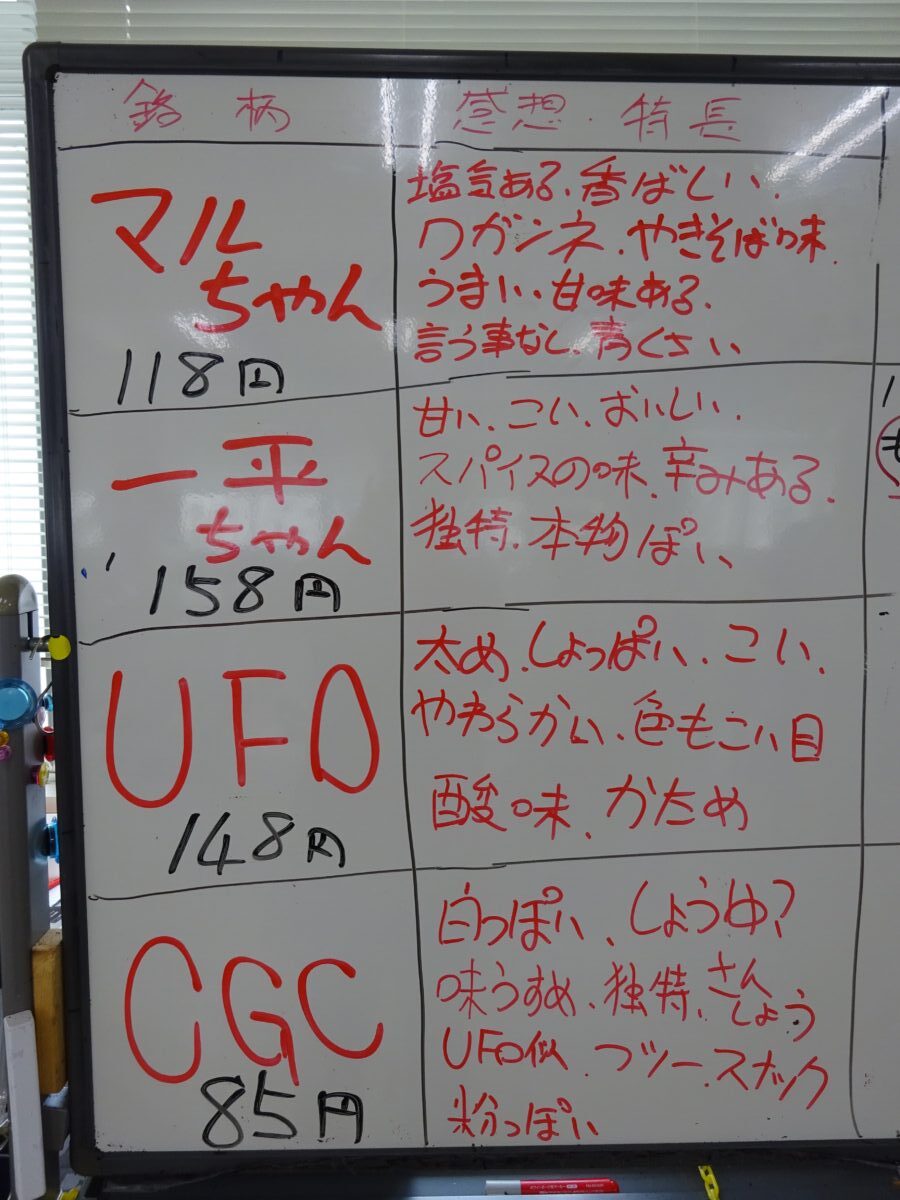 銘柄
感想・特長
マル
ちゃん
118円
塩気ある、香ばしい、
ワガシネ、やきそば味
うまい、甘味ある、
言う事なし、青くさい、
一平
ちゃん
158円
甘い、こい、おいしい、
スパイスの味、辛みある、
独特、本物ぽい、
UFO
148円
太め、しょっぱい、こい、
やわらかい、色もこい目
酸味、かため
CGC
85円
白っぽい、しょうゆ?
味うすめ、独特、さんしょう
UFO似、フツー、スナック
粉っぽい、
1